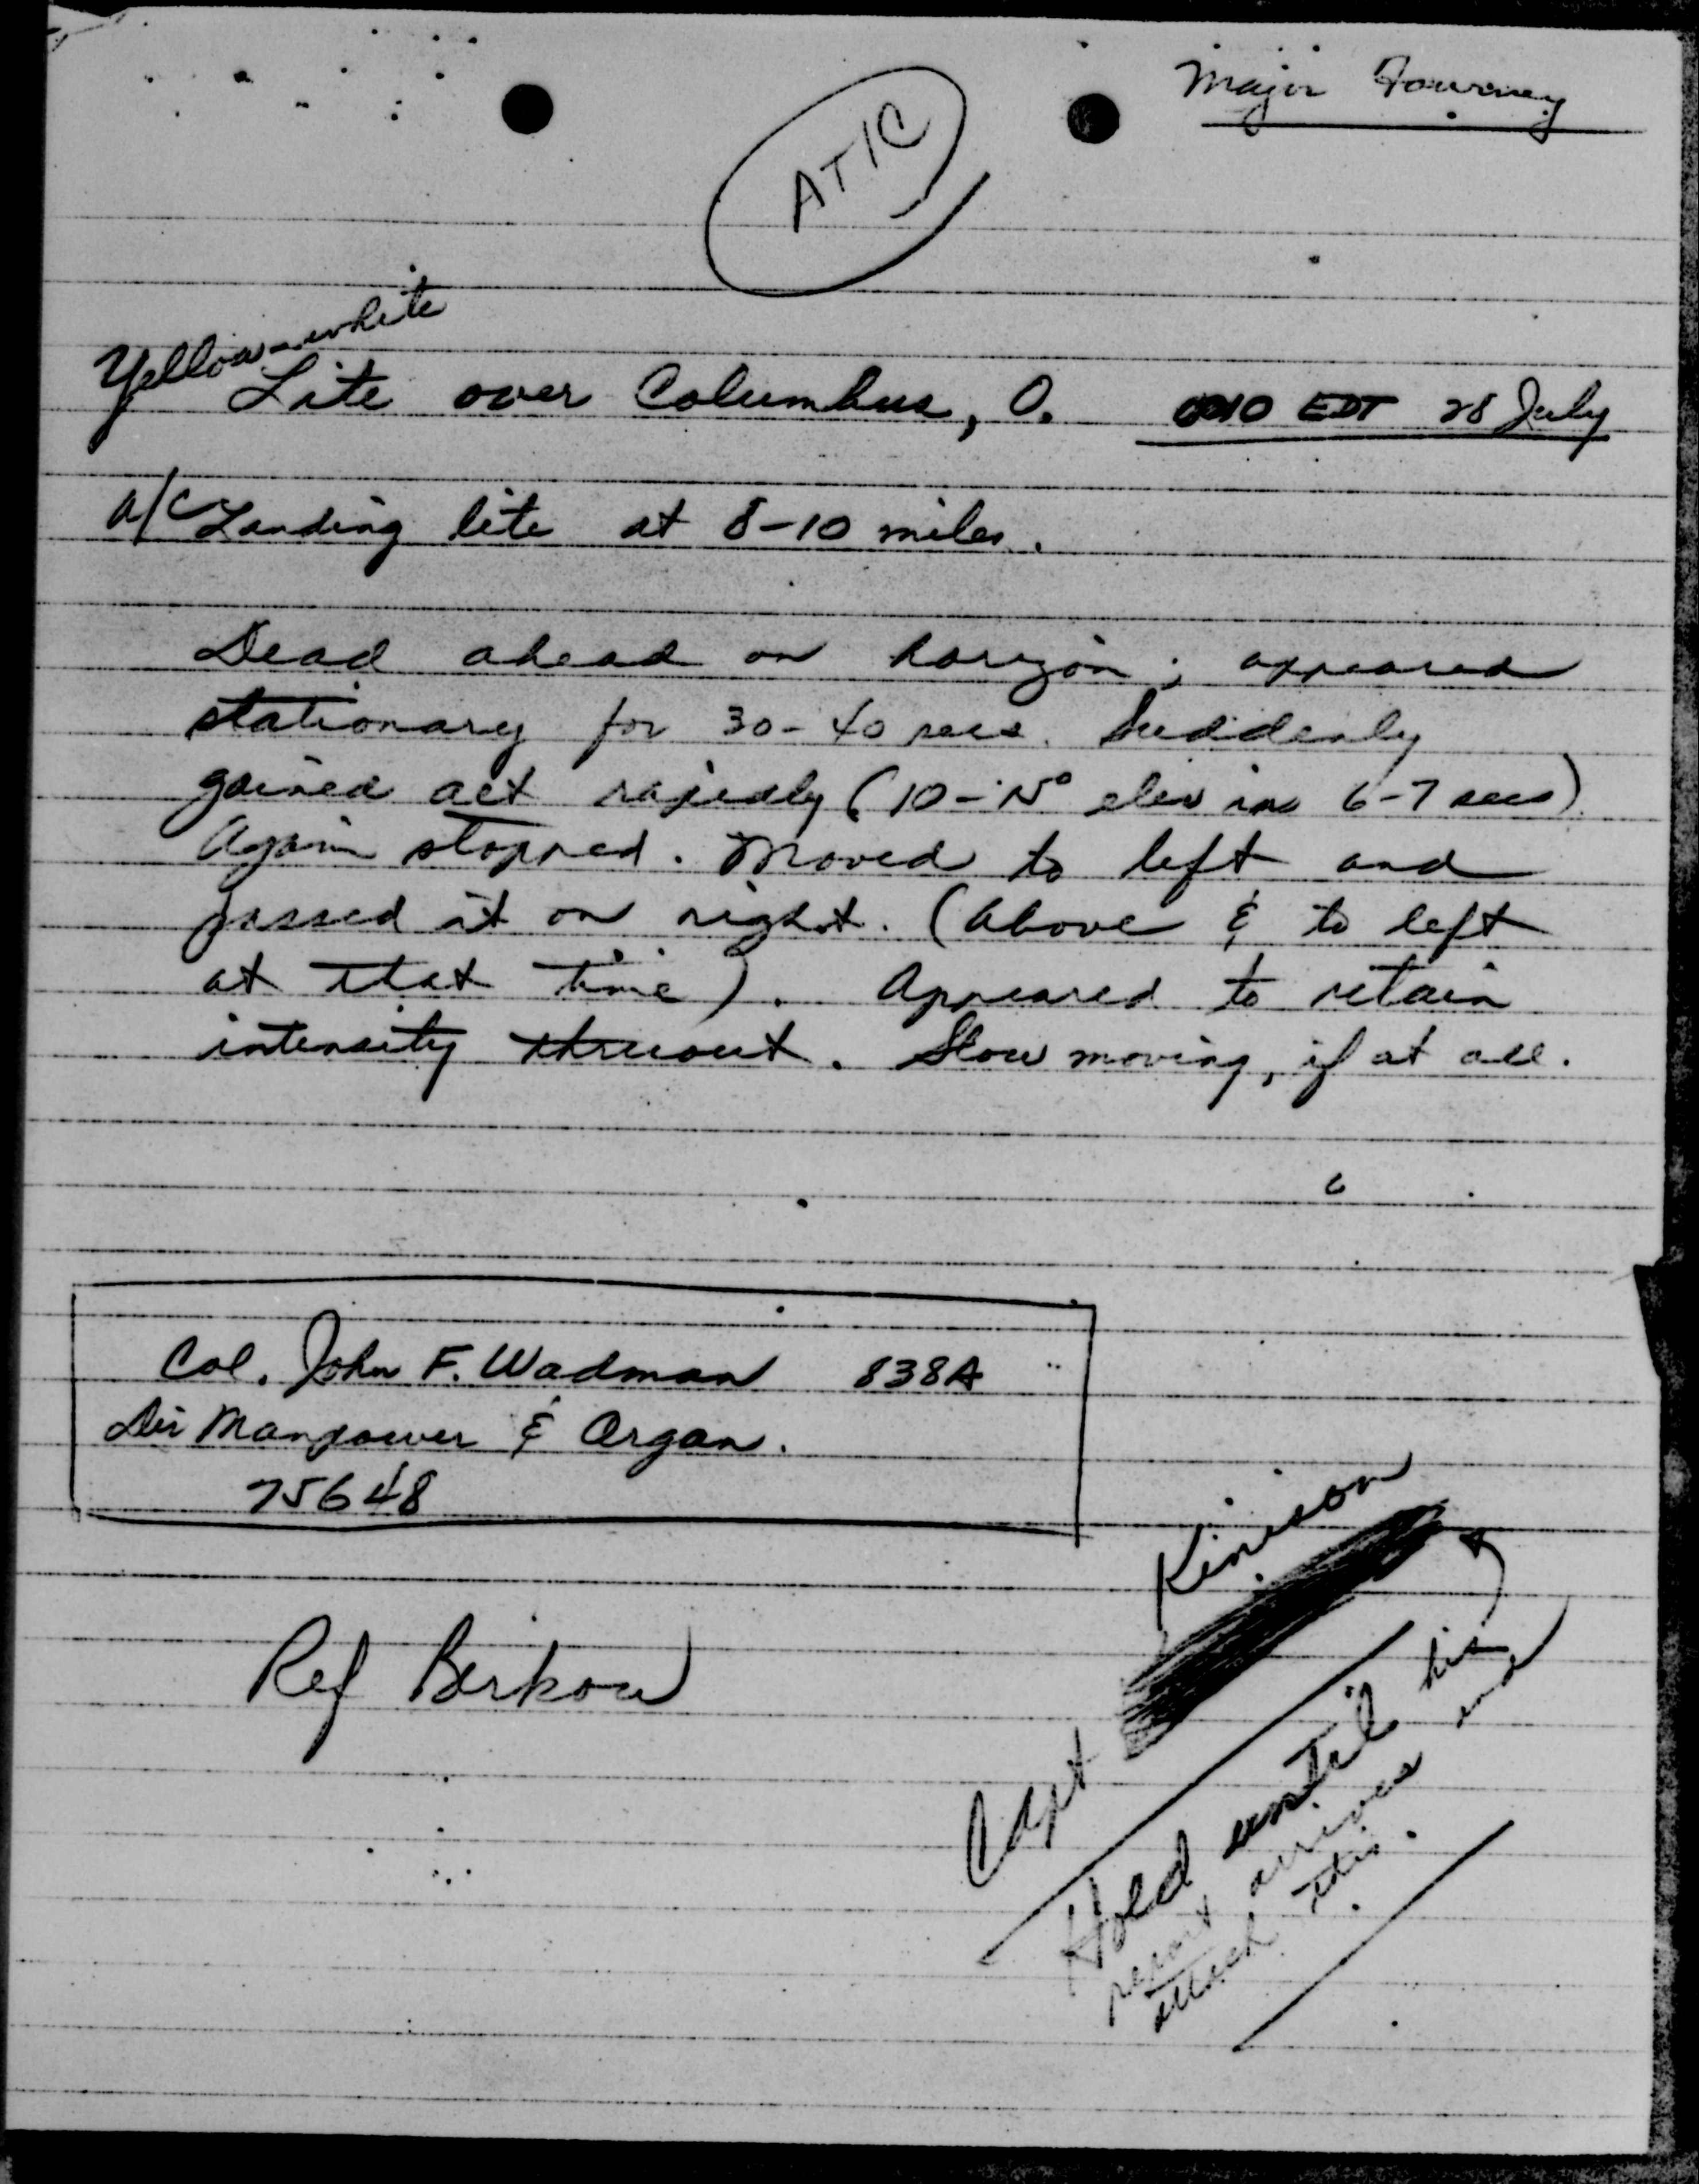 Major Fourney
ATIC
Yellow-white
Lite over Columbus, O. 0010 EDT 28 July
A/C Landing lite at 8-10 miles.
Dead ahead on horizon; appeared
stationary for 30-40 secs. Suddenly
gained alt rapidly (10-15° elev in 6-7 secs)
Again stopped. Moved to left and
passed it on right. (Above & to left
at that time). Appeared to retain
intensity thruout. Slow moving, if at all.
Col. John F. Wadman 838A
Dir Manpower & Organ.
75648
Ref Berkow
Capt Kinison
Hold until his
report arrives and
attach this.